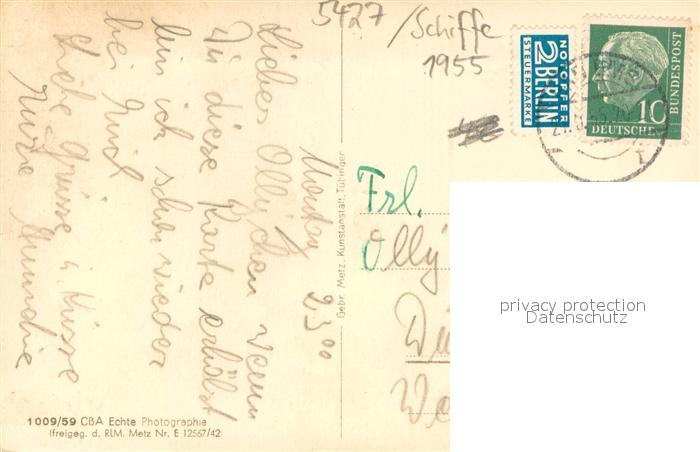 5427 /Schiffe
1955
NOTOPFER
2 BERLIN
STEUERMARKE
DEUTSCHE
BUNDESPOST
10
Montag
23⁰⁰
Liebes Ollychen wenn
Du diese Karte erhälst
bin ich schon wieder
bei Euch
Liebe Grüsse u. Küsse
Frl.
Olly
privacy protection
Datenschutz
Gebr. Metz, Kunstanstalt, Tübingen
1009/59 CBA Echte Photographie
(freigeg. d. RLM. Metz Nr. E 12567/42